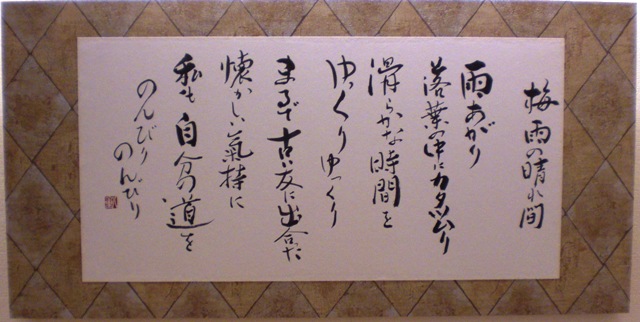 梅雨の晴れ間
雨あがり
落葉の中にカタツムリ
滑らかな時間を
ゆっくりゆっくり
まるで古い友に出合た
懐かしい氣持に
私も自分の道を
のんびりのんびり